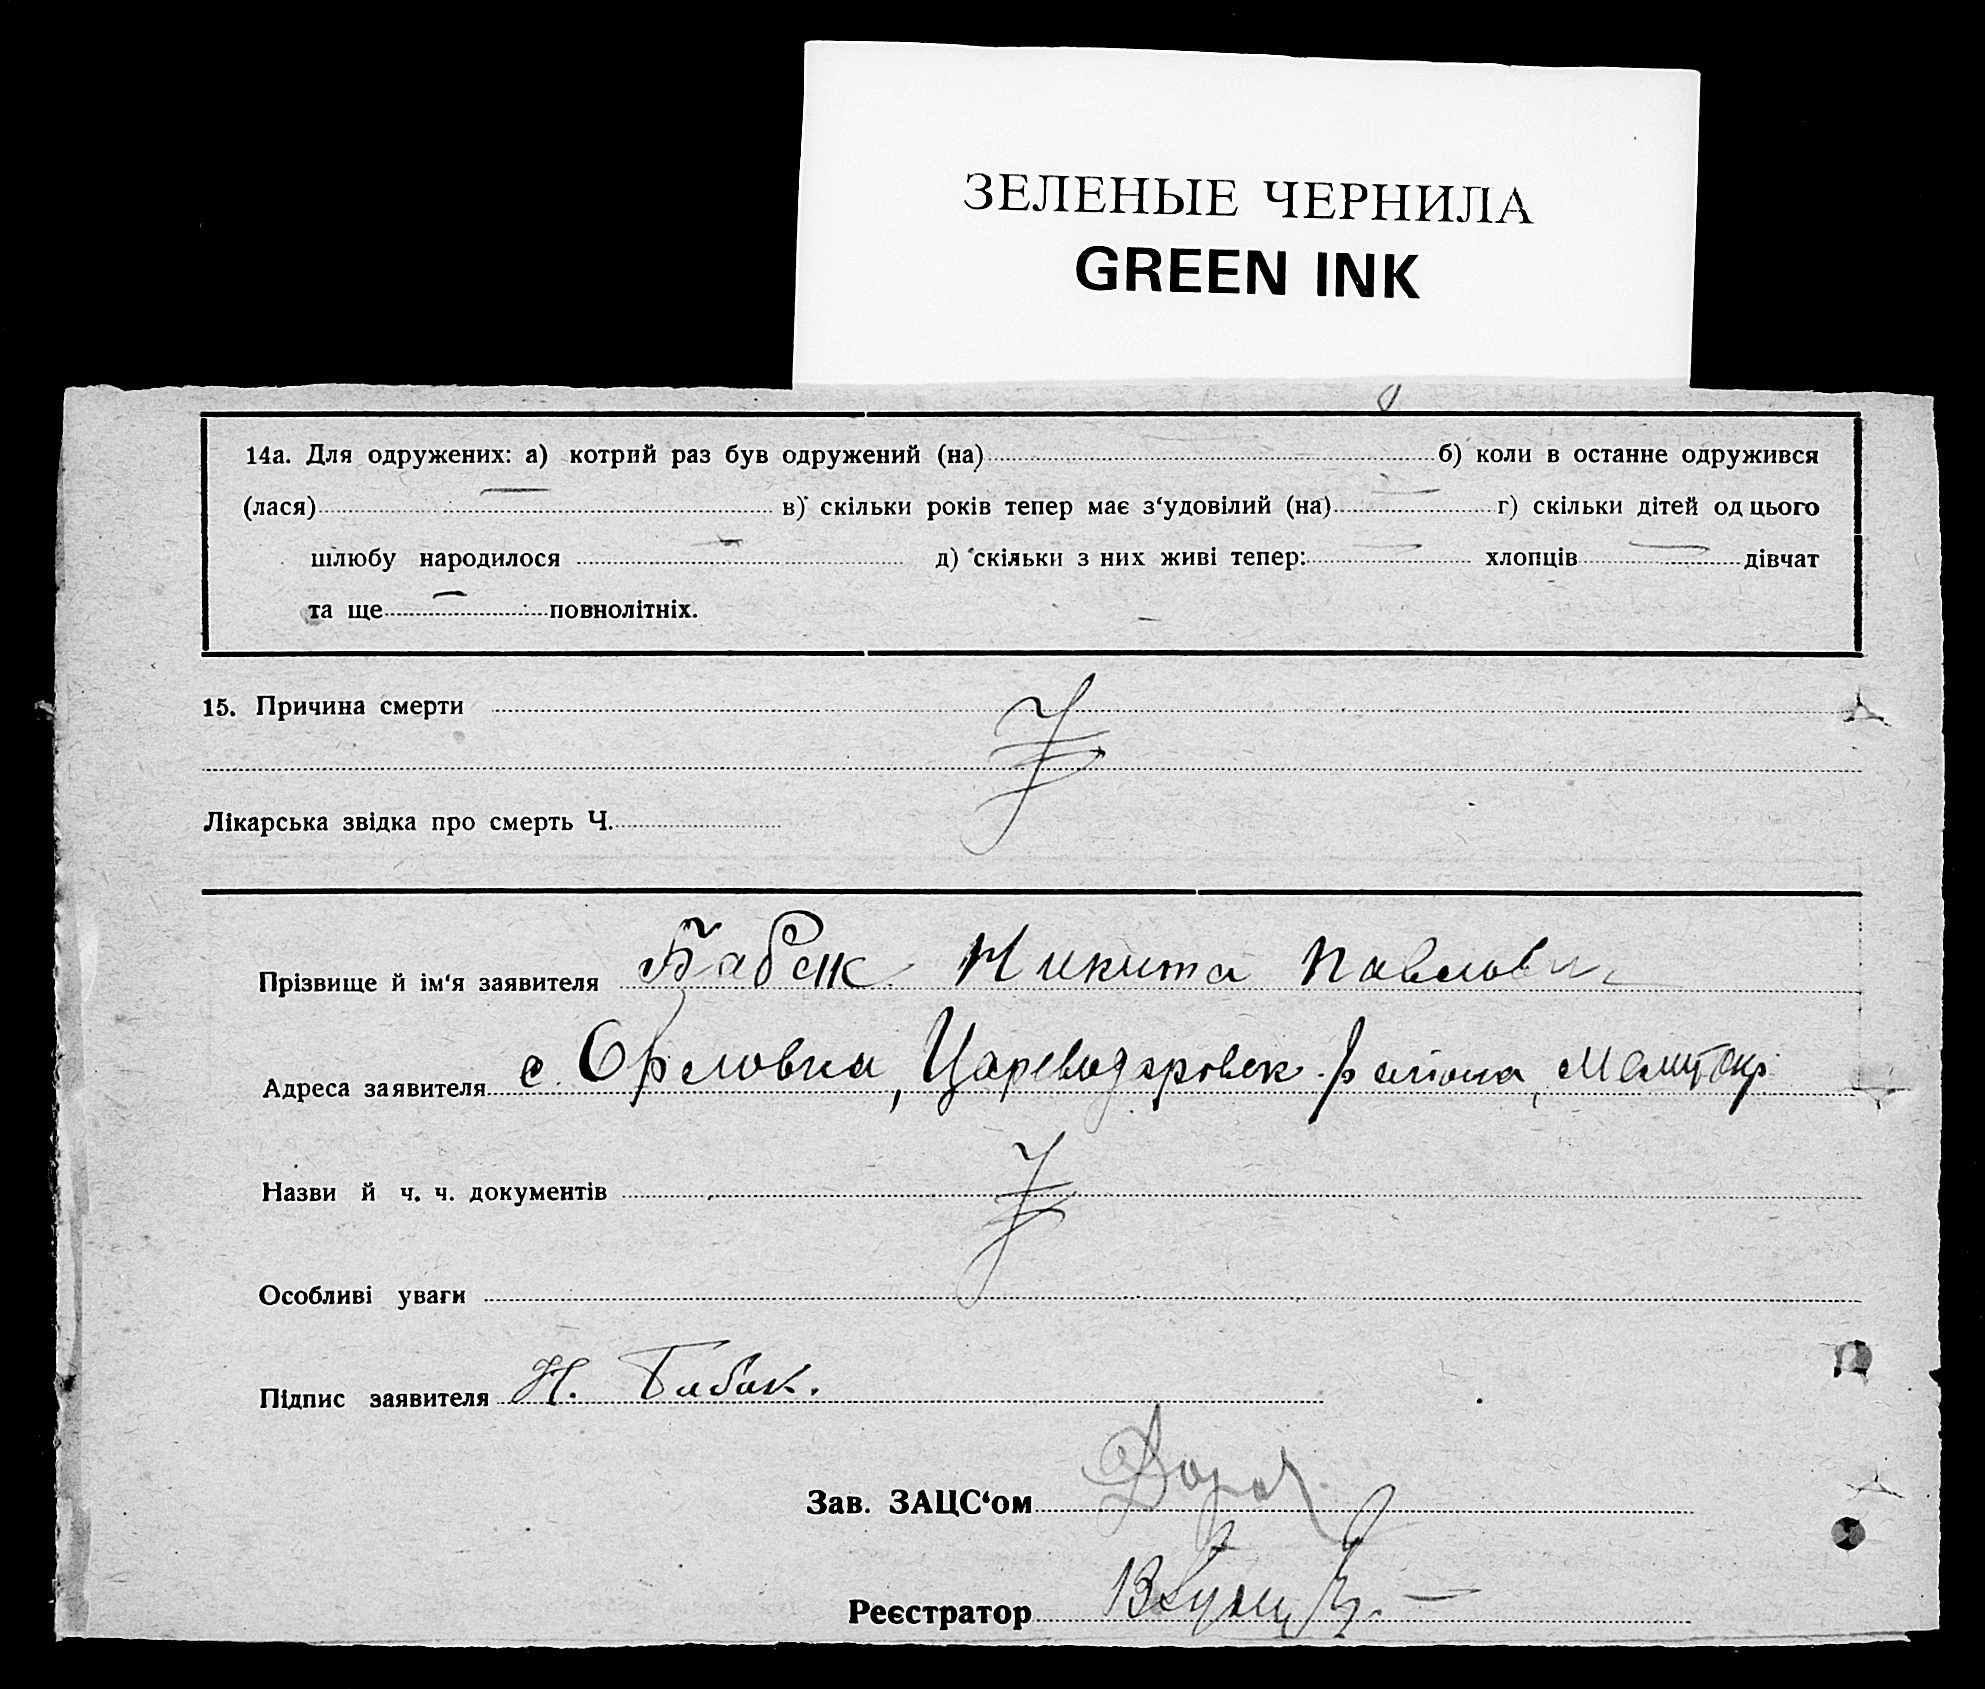 ЗЕЛЕНЫЕ ЧЕРНИЛА
GREEN INK
14а. Для одружених: а) котрий раз був одружений (на) б) коли в останне одружився
(лася) — в) скільки років тепер має з‘удовілий (на) — г) скільки дітей од цього
шлюбу народилося — д) скільки з них живі тепер: — хлопців — дівчат
та ще — повнолітніх.
15. Причина смерти
Лікарська звідка про смерть Ч.
Прізвище й ім‘я заявителя Бабак Никита Павлович
Адреса заявителя с. Орловка, Цареводаровск. района, Мелит. окр.
Назви й ч. ч. документів
Особливі уваги
Підпис заявителя Н. Бабак.
Зав. ЗАЦС‘ом
Реєстратор